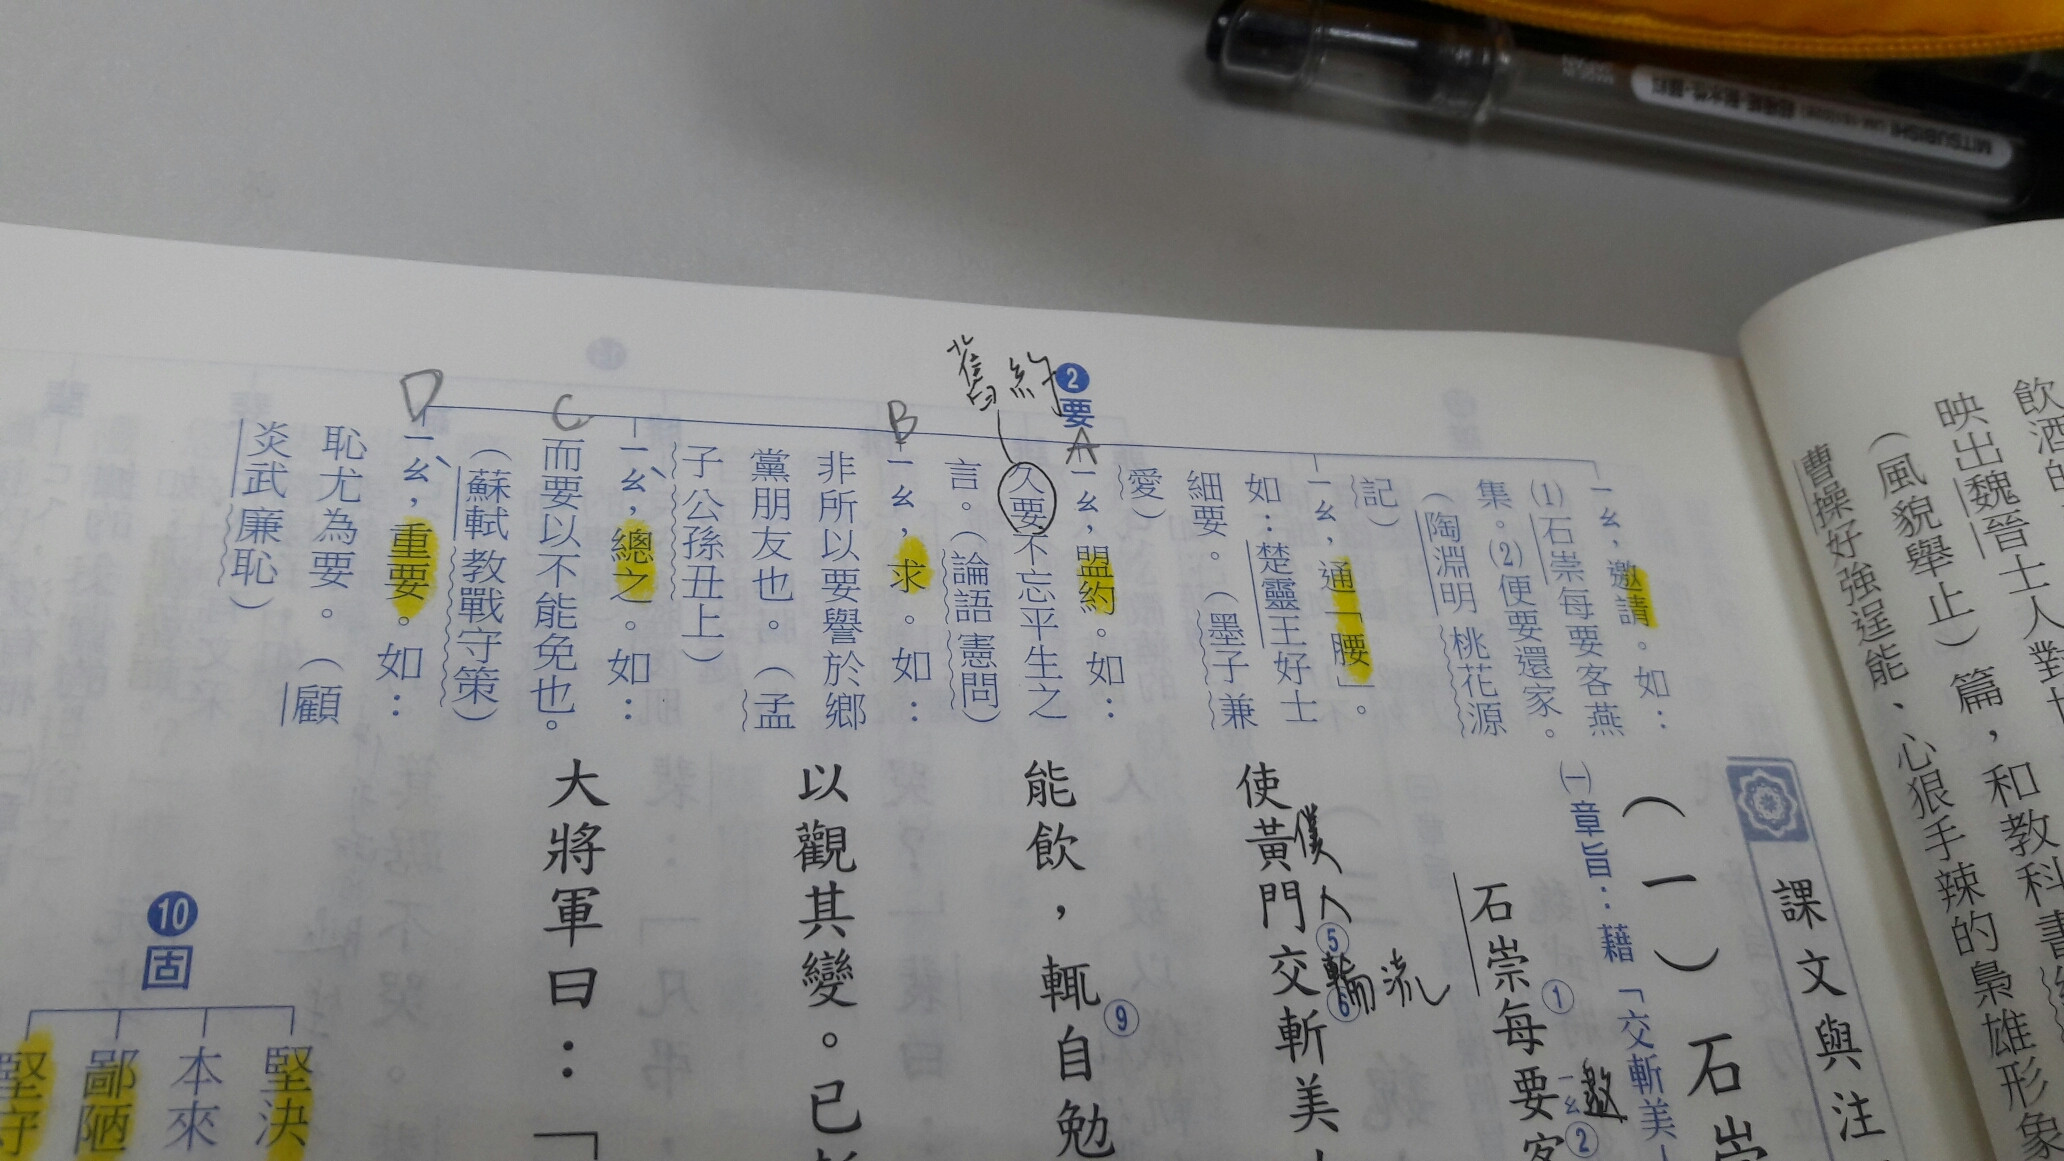 飲酒的
映出魏晉士人對
(風貌舉止)篇，和教科書
曹操好強逞能、心狠手辣的梟雄形象
課文與注
(一)石崇
㈠章旨：藉「交斬美人
石崇①每要②客
邀
ㄧㄠ
使黃門⑤交⑥斬美
僕人
輪流
能飲，輒⑨自勉
以觀其變。已
大將軍曰：「
❷要
ㄧㄠ，邀請。如：
⑴石崇每要客燕
集。⑵便要還家。
(陶淵明 桃花源
記)
ㄧㄠ，通「腰」。
如：楚靈王好士
細要。(墨子 兼
愛)
A
ㄧㄠ，盟約。如：
久要不忘平生之
言。(論語 憲問)
舊約
B
ㄧㄠ，求。如：
非所以要譽於鄉
黨朋友也。(孟
子 公孫丑上)
C
ㄧㄠˋ，總之。如：
而要以不能免也。
(蘇軾 教戰守策)
D
ㄧㄠˋ，重要。如：
恥尤為要。(顧
炎武 廉恥)
❿固
堅決
本來
鄙陋
堅守